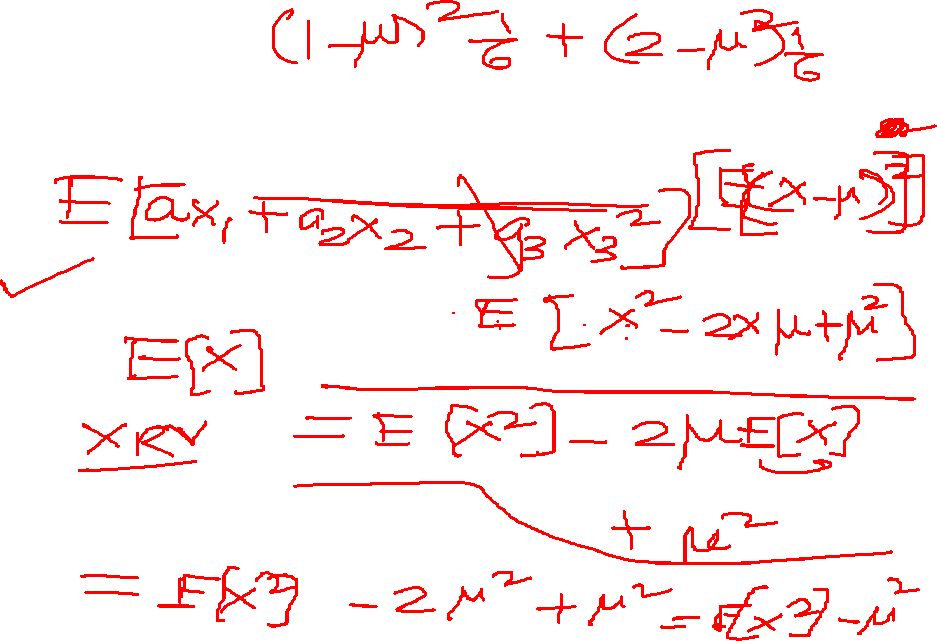 (1-μ)² 1/6 + (2-μ²) 1/6
E[ax₁ + a₂x₂ + a₃x₃²] [E[(x-μ)²]]
E[x² - 2xμ + μ²]
E[x]
X RV = E[x²] - 2μE[x]
+ μ²
= E[x²] - 2μ² + μ² = E[x²] - μ²